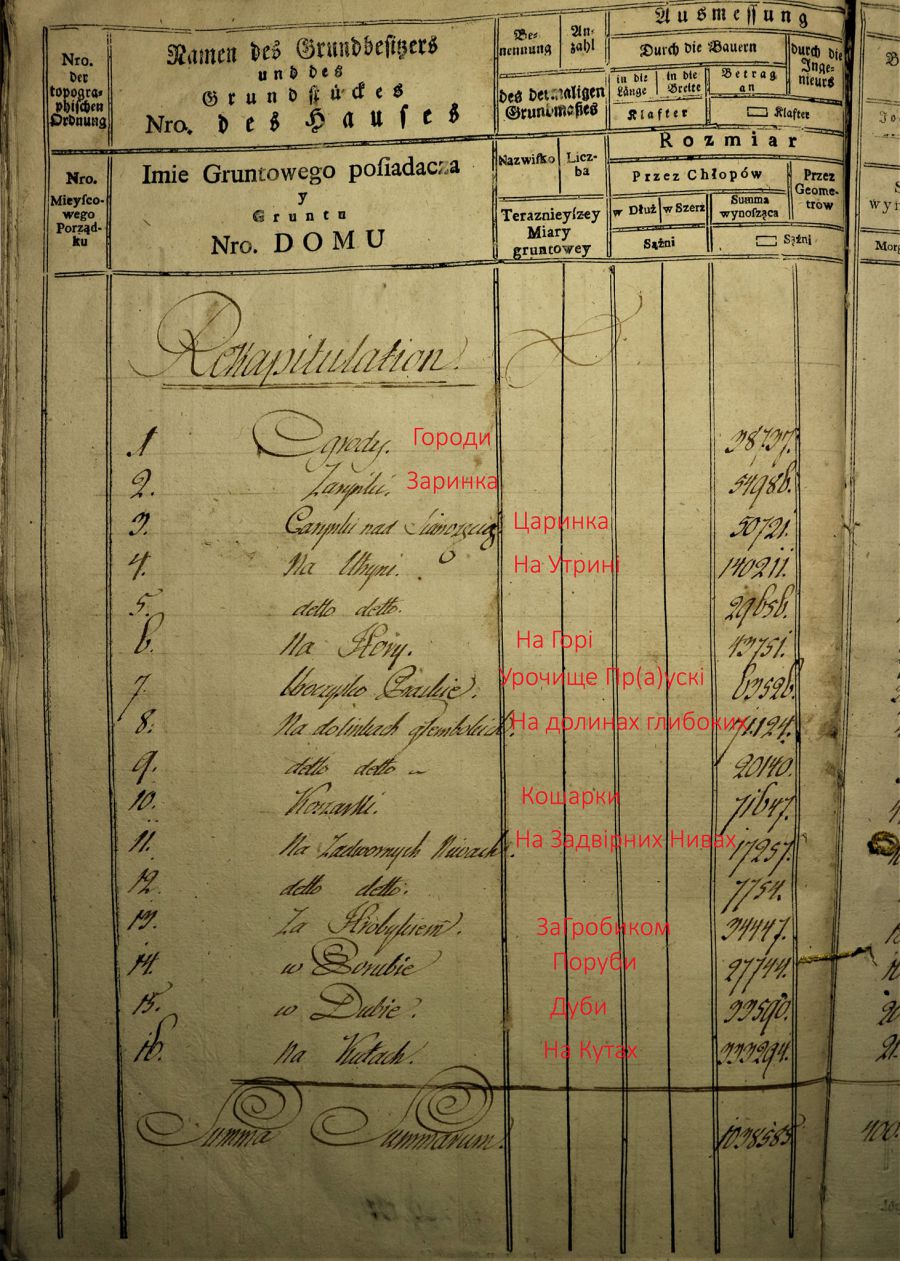 Nro. der topogra-phischen Ordnung
Namen des Grundbesitzers
und des
Grundstückes
Nro. des Hauses
Be-nennung
An-zahl
des dermaligen Grundmaßes
Ausmessung
Durch die Bauern
durch die Inge-nieurs
in die Länge
in die Breite
Betrag an
Klafter
Klafter
Nro. Mieyſco-wego Porząd-ku
Imie Gruntowego poſiadacza
y
Gruntu
Nro. DOMU
Nazwiſko
Licz-ba
Teraznieyſzey Miary gruntowey
Rozmiar
Przez Chłopów
Przez Geome-trów
w Dłuż
w Szerz
Summa wynoſząca
Sążni
Sążni
Rekapitulation.
1 Ogrody. Городи 38737.
2. Zarynki. Заринка 54986.
3. Carynki nad Царинка 50721.
4. Na Utryni. На Утрині 140211.
5. detto detto. 29656.
6. Na Hory. На Горі 43751.
7. Uroczysko Урочище Пр(а)ускі 63526.
8. Na dolinkach głembokich. На долинах глибоких 71124.
9. detto detto 20140.
10. Koszarki. Кошарки 71647.
11. Na Zadwornych Niwach. На Задвірних Нивах 17257.
12. detto detto. 7754.
13. Za Hrobykiem. ЗаГробиком 34447.
14. w Porubie Поруби 27744.
15. w Dubie. Дуби 33590.
16. Na Kutach. На Кутах 333294.
Summa Summarum. 1038585.